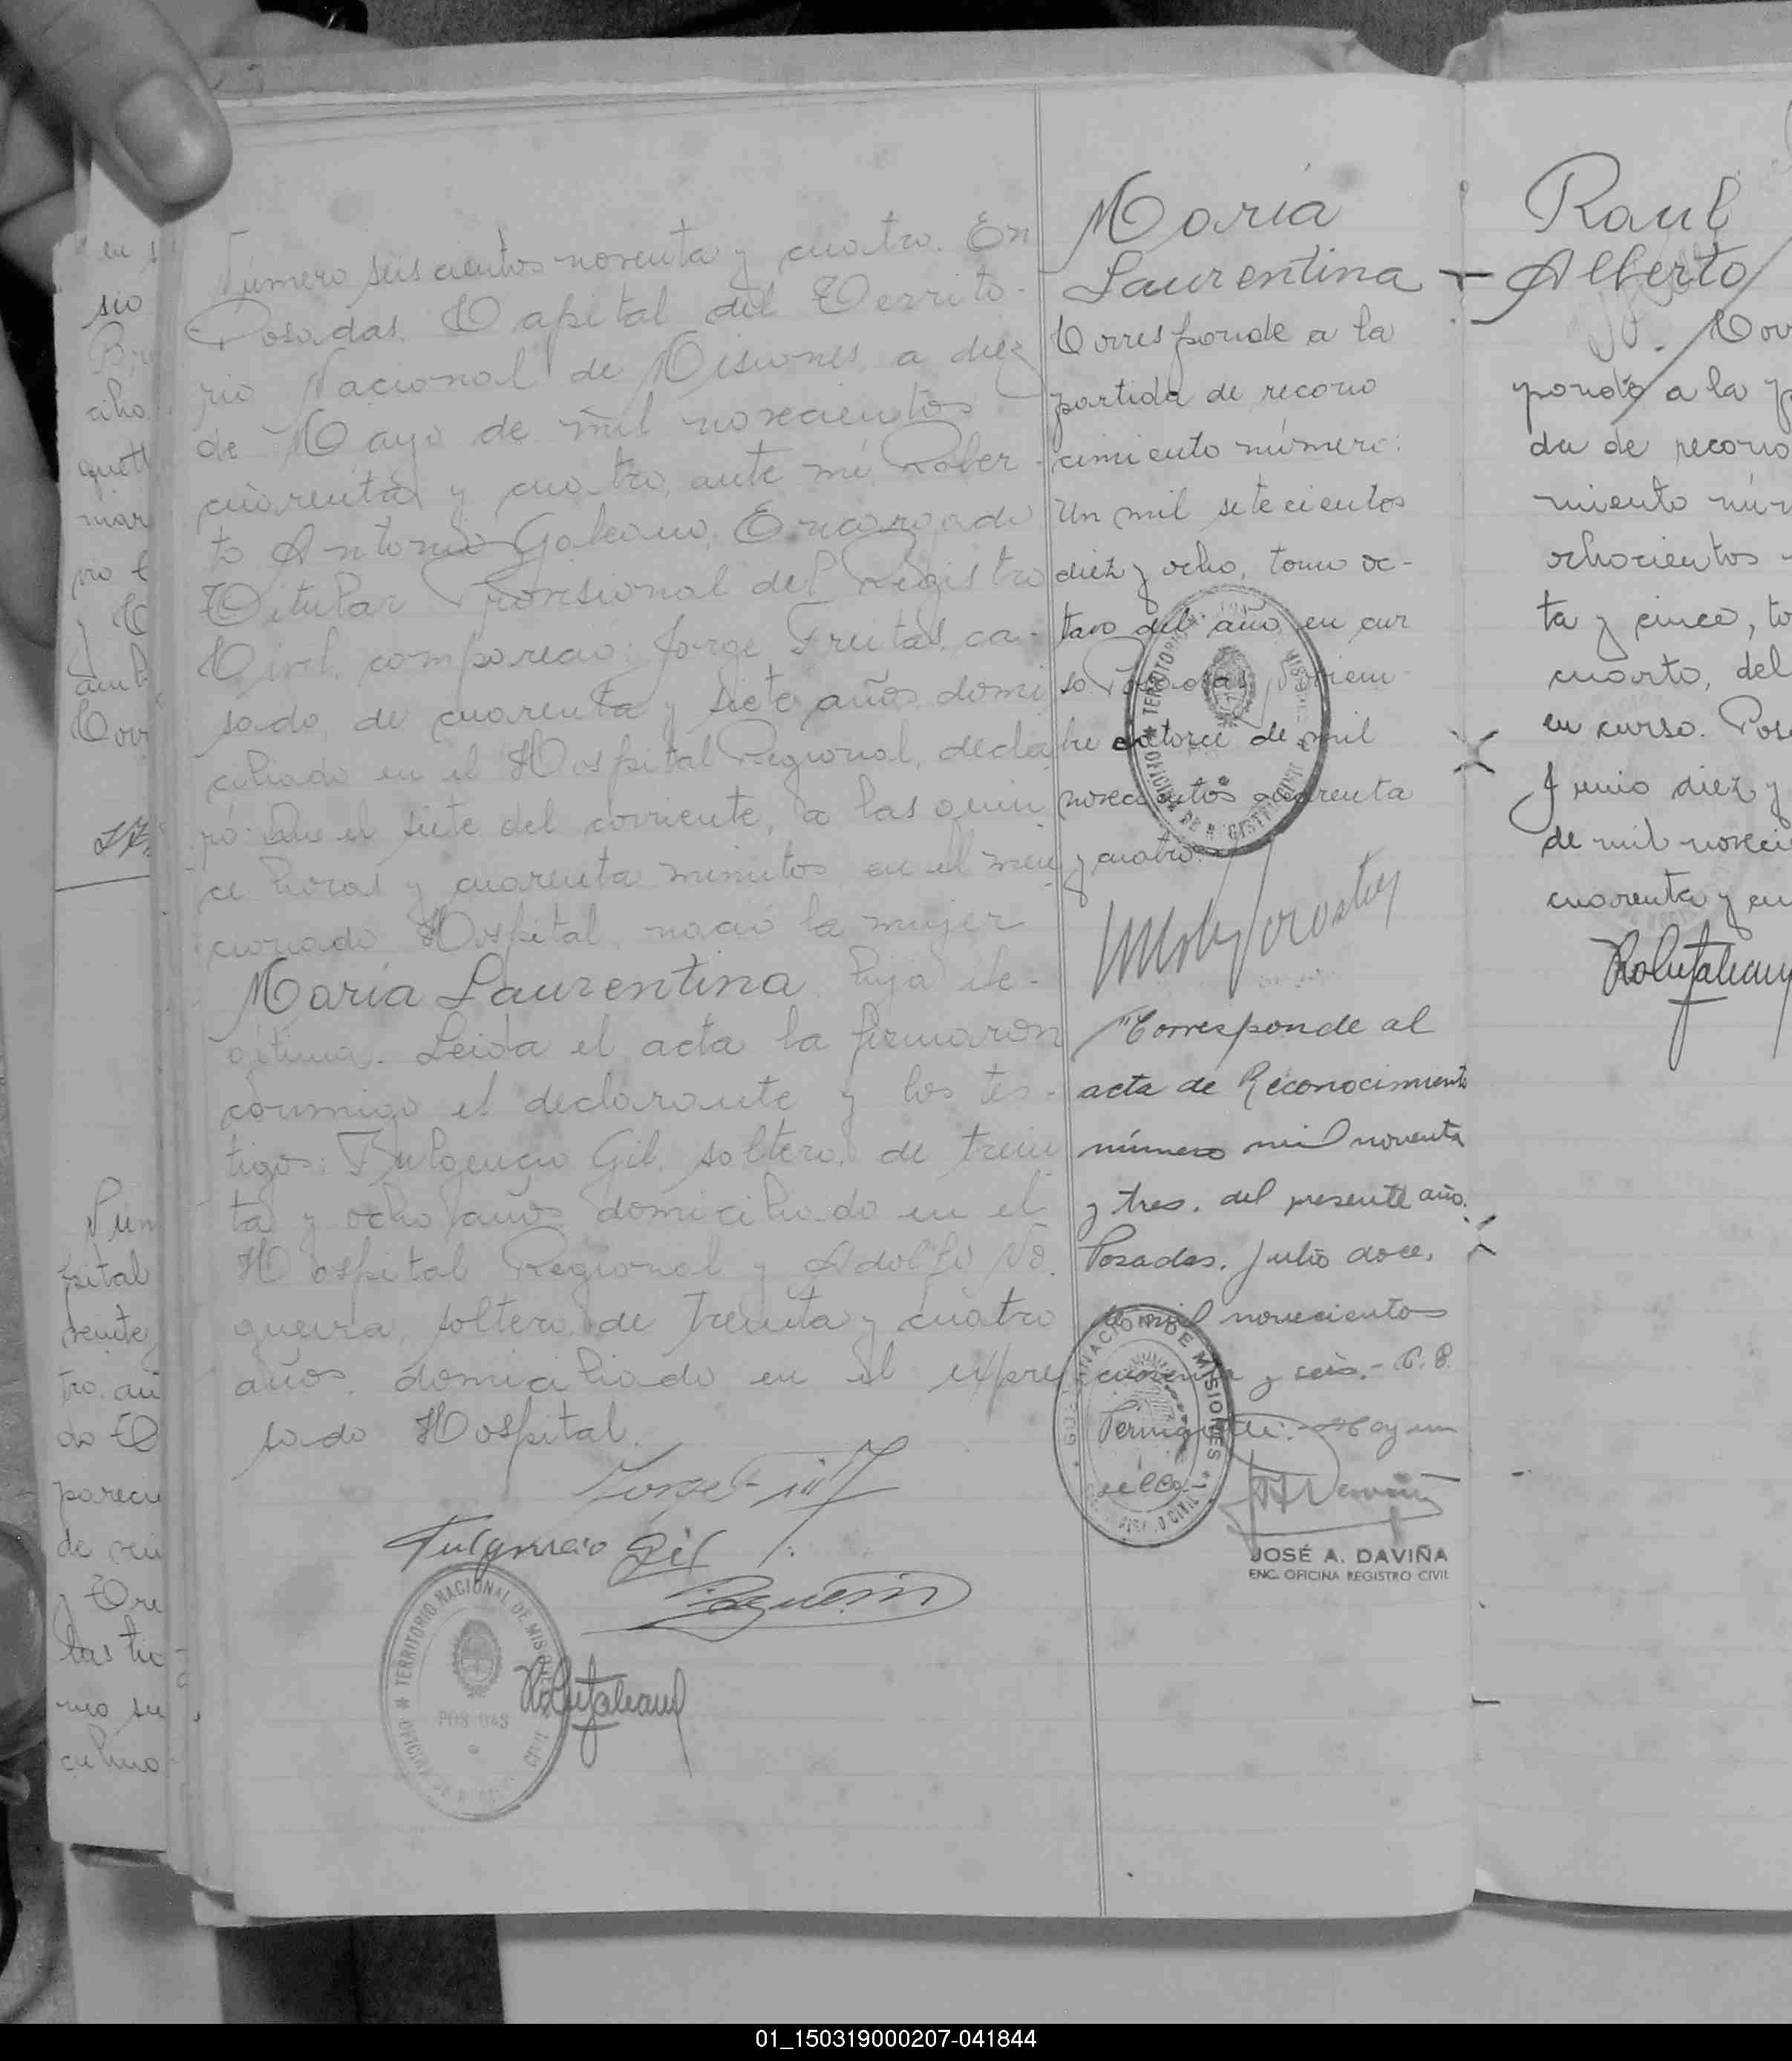 Número seiscientos noventa y cuatro. En
Posadas, Capital del Territo-
rio Nacional de Misiones, a diez
de Mayo de mil novecientos
cuarenta y cuatro, ante mí, Rober-
to Antonio Galeano, Encargado
Titular Provisional del Registro
Civil, compareció: Jorge Freitas, ca-
sado, de cuarenta y siete años, domi
ciliado en el Hospital Regional, decla
ró: Que el siete del corriente, a las quin
ce horas y cuarenta minutos, en el men
cionado Hospital, nació la mujer
María Laurentina, hija ile-
gítima. Leida el acta la firmaron
conmigo el declarante y los tes-
tigos: Fulgencio Gil, soltero, de trein
ta y ocho años domiciliado en el
Hospital Regional y Adolfo No
gueira, soltero, de treinta y cuatro
años, domiciliado en el expre
sado Hospital.
Fulgencio Gil
TERRITORIO NACIONAL DE MISIONES
POSADAS
OFICINA DE REGISTRO CIVIL
María
Laurentina
Corresponde a la
partida de recono
cimiento número:
Un mil setecientos
diez y ocho, tomo oc-
tavo del año en cur
so. Posadas, Noviem
bre catorce de mil
novecientos cuarenta
y cuatro.
Corresponde al
acta de Reconocimiento
número mil noventa
y tres, del presente año.
Posadas, Julio doce,
de mil novecientos
cuarenta y seis.-
Hay un
sello
GOBERNACION DE MISIONES
JOSÉ A. DAVIÑA
ENC. OFICINA REGISTRO CIVIL
Raul
Alberto
ponde a la
da de recono
miento
ochocientos
ta y cinco,
cuarto, del
en curso.
Junio diez y
de mil noveci
cuarenta y
01_150319000207-041844